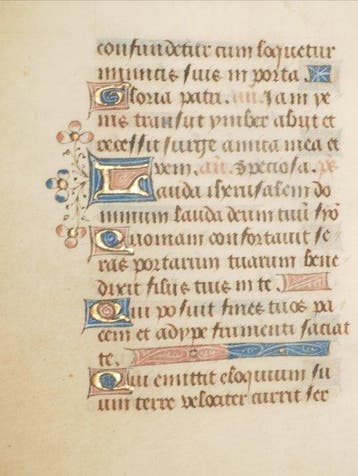 confundetur cum loquetur
inimicis suis in porta.
Gloria patri. an. Jam ye
ms transiit ymber abiit et
recessit surge amica mea et
veni. an. Speciosa. ps
Lauda iherusalem do
minum lauda deum tuū syō
Quoniam confortavit se
ras portarum tuarum bene
dixit filiis tuis in te.
Qui posuit fines tuos pa
cem et adype frumenti saciat
te.
Qui emittit eloquium su
um terre velociter currit ser